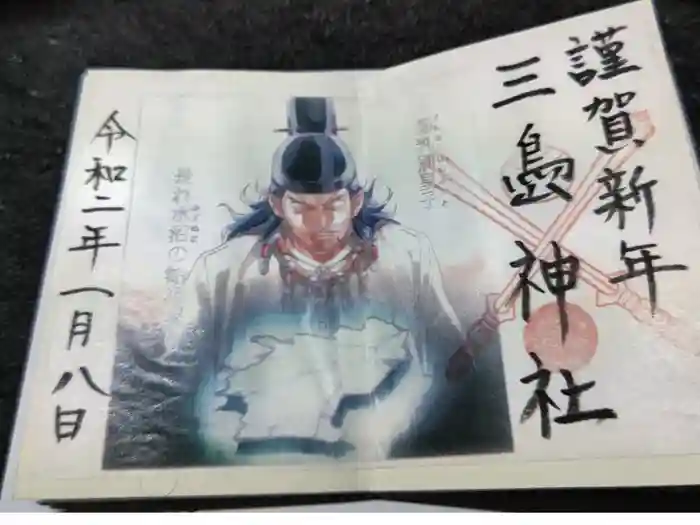 謹賀新年
三島神社
令和二年一月八日